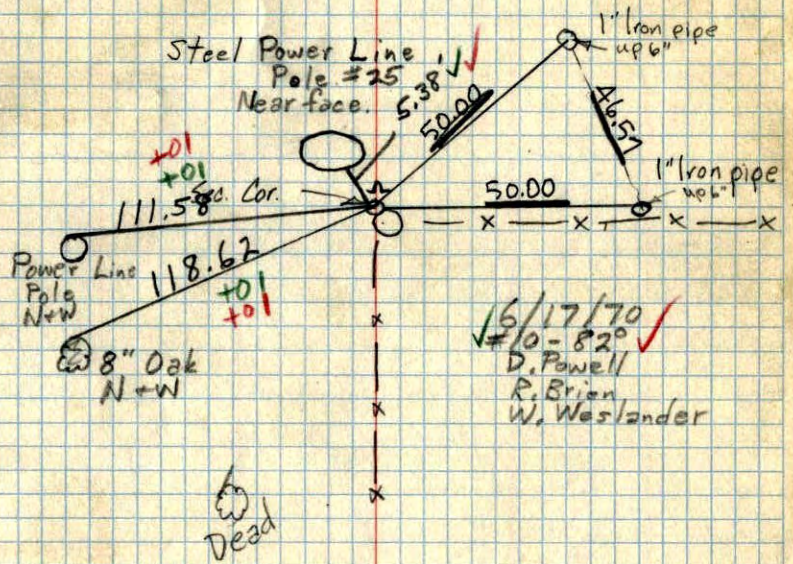 Steel Power Line
Pole #25
Near face.
5.38'
50.00
1" Iron pipe
up 6"
46.57
1" Iron pipe
up 6"
50.00
+01
+01
Sec. Cor.
111.58
118.62
+01
+01
Power Line
Pole
N+W
8" Oak
N+W
6/17/70
#10-82°
D. Powell
R. Brien
W. Weslander
Dead